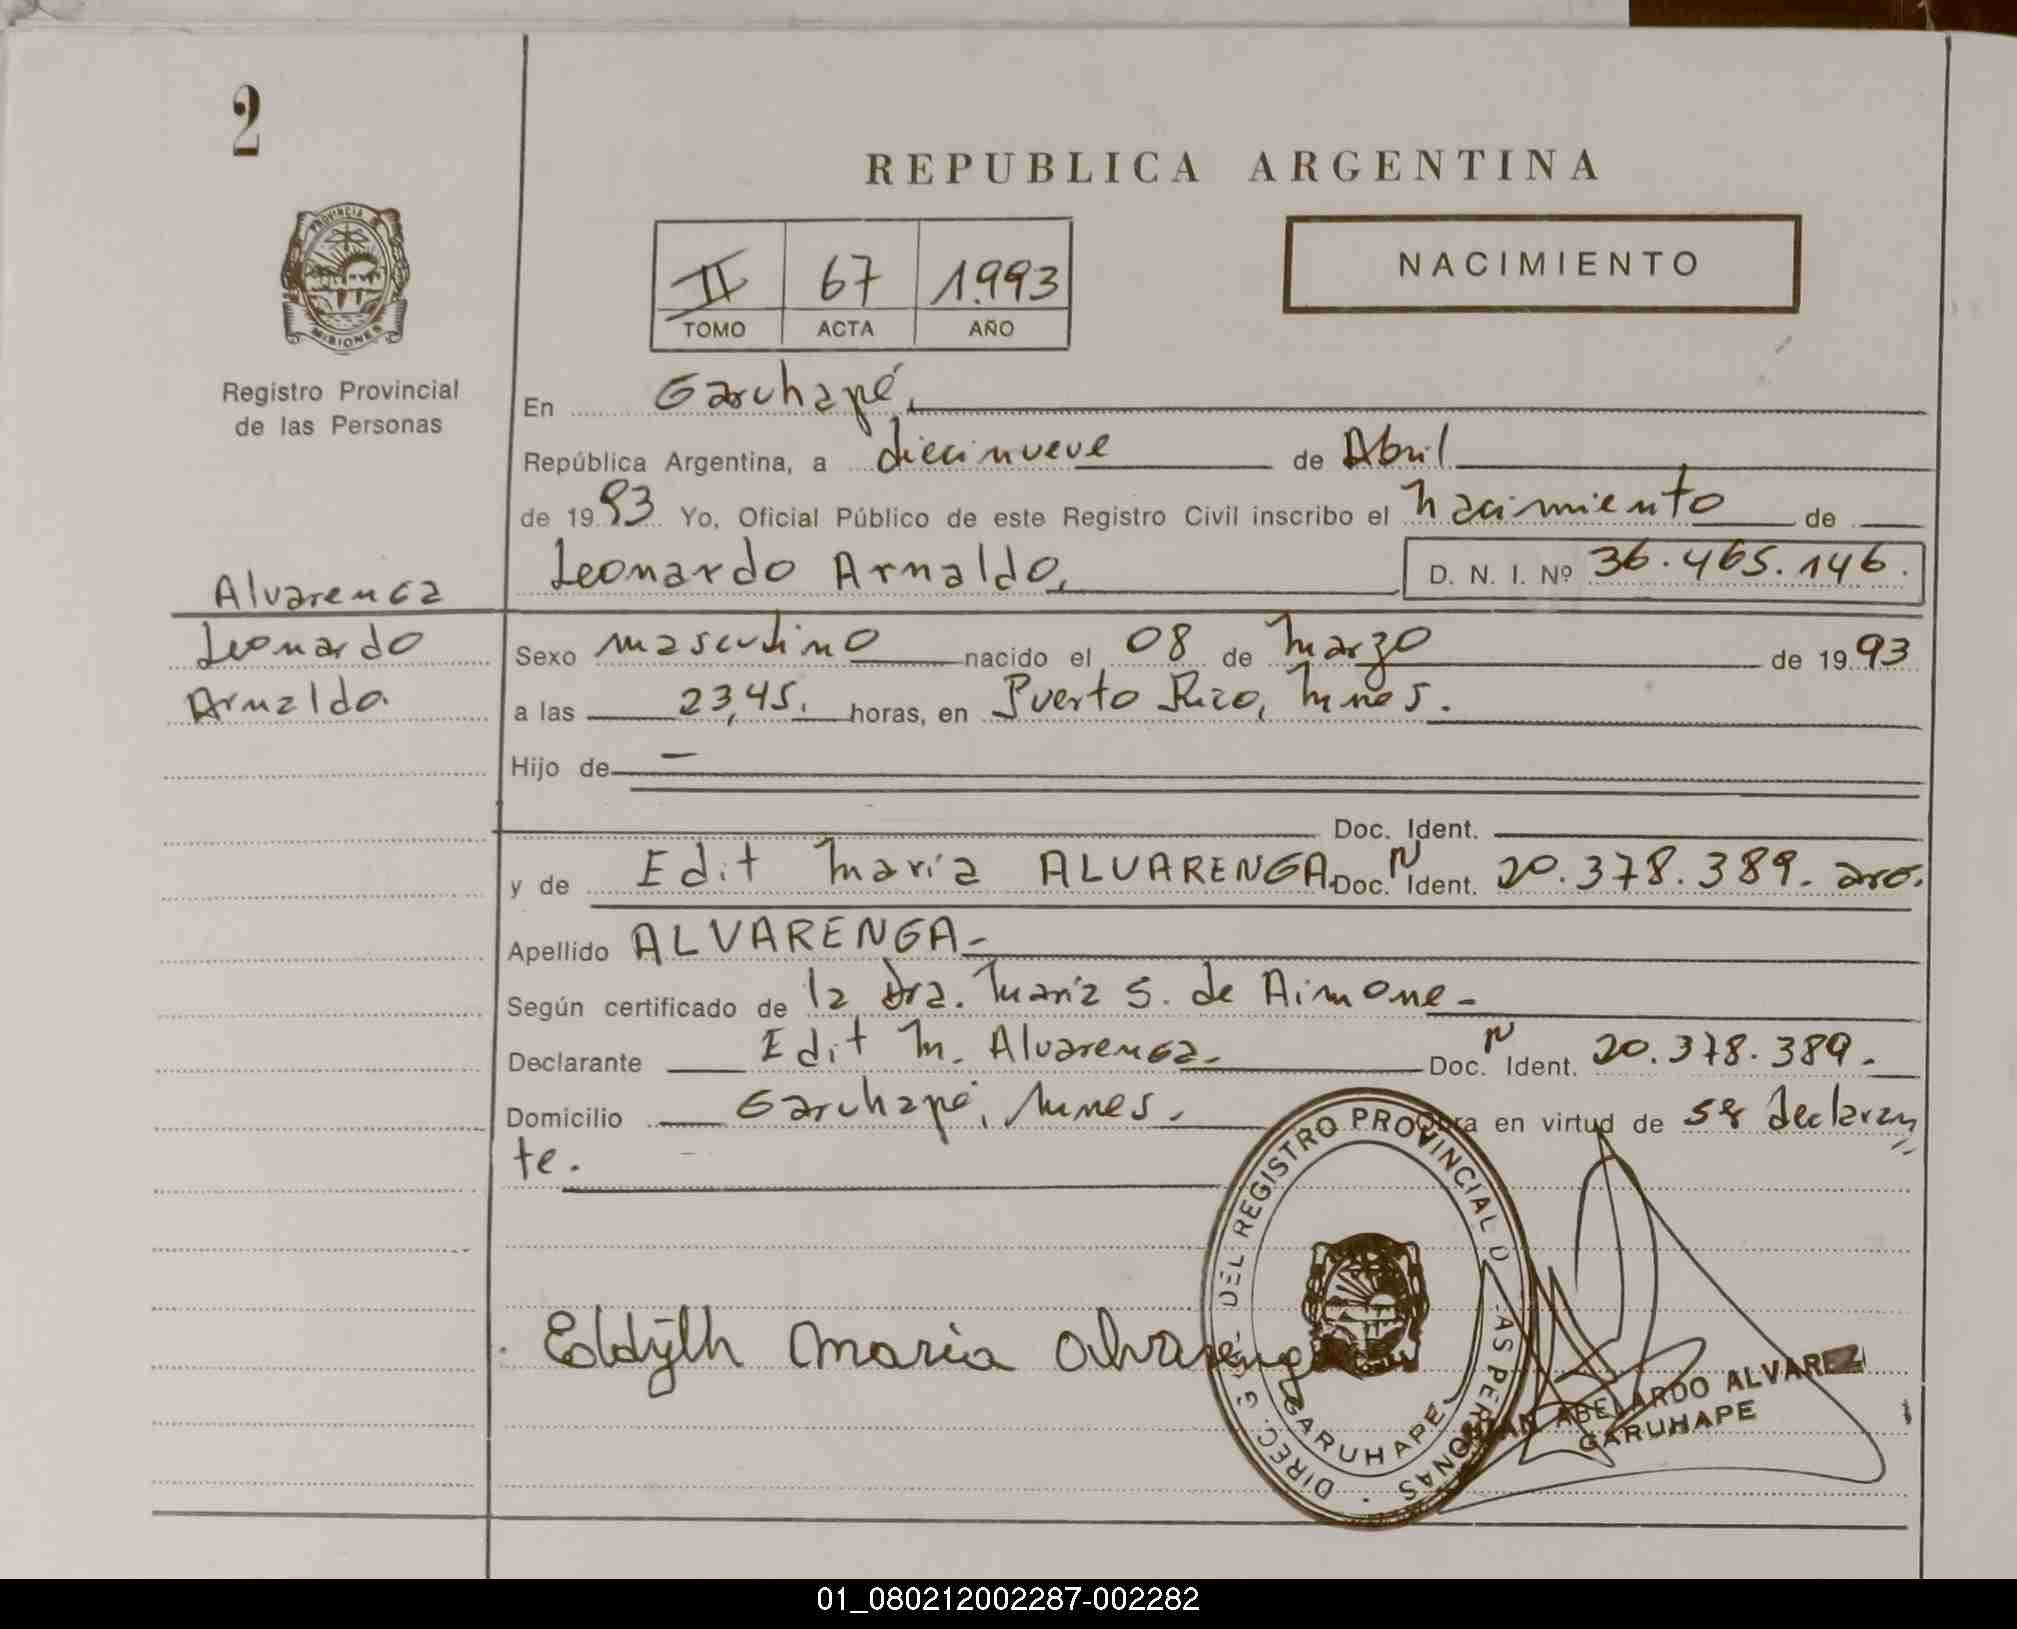 2
REPUBLICA ARGENTINA
PROVINCIA DE
MISIONES
II 67 1.993
TOMO ACTA AÑO
NACIMIENTO
Registro Provincial
de las Personas
En Garuhapé,
República Argentina, a diecinueve de Abril
de 1993 Yo, Oficial Público de este Registro Civil inscribo el nacimiento de
Leonardo Arnaldo, D. N. I. Nº 36.465.146.
Alvarenga
Leonardo
Arnaldo.
Sexo masculino nacido el 08 de Marzo de 1993
a las 23,45. horas, en Puerto Rico, Mnes.
Hijo de —
Doc. Ident.
y de Edit María ALVARENGA. Doc. N Ident. 20.378.389. aro.
Apellido ALVARENGA-
Según certificado de la Dra. María S. de Aimone-
Declarante Edit M. Alvarenga- Doc. N Ident. 20.378.389.-
Domicilio Garuhapé, Mnes.- Obra en virtud de ser declaran
te.
Eddyth Maria Alvarenga
DIREC. GRAL. DEL REGISTRO PROVINCIAL D LAS PERSONAS
GARUHAPE
JUAN ABELARDO ALVAREZ
GARUHAPE
01_080212002287-002282